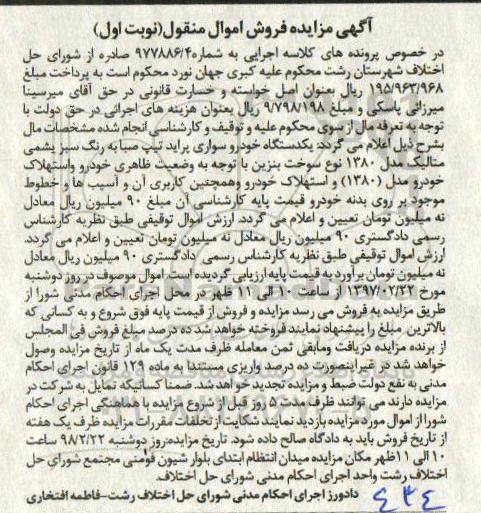 آگهی مزایده فروش اموال منقول(نوبت اول)
در خصوص پرونده های کلاسه اجرایی به شماره۹۷۷۸۸۶/۴ صادره از شورای حل
اختلاف شهرستان رشت محکوم علیه کبری جهان نورد محکوم است به پرداخت مبلغ
۱۹۵/۹۶۳/۹۶۸ ریال بعنوان اصل خواسته و خسارت قانونی در حق آقای میرسینا
میرزانی پاسکی و مبلغ ۹/۷۹۸/۱۹۸ ریال بعنوان هزینه های اجرائی در حق دولت با
توجه به تعرفه مال از سوی محکوم علیه و توقیف و کارشناسی انجام شده مشخصات مال
بشرح ذیل اعلام می گردد: یکدستگاه خودرو سواری پراید تیپ صبا به رنگ سبز یشمی
متالیک مدل ۱۳۸۰ نوع سوخت بنزین با توجه به وضعیت ظاهری خودرو واستهلاک
خودرو مدل (۱۳۸۰) و استهلاک خودرو وهمچنین کاربری آن و آسیب ها و خطوط
موجود بر روی بدنه خودرو قیمت پایه کارشناسی آن مبلغ ۹۰ میلیون ریال معادل
نه میلیون تومان تعیین و اعلام می گردد. ارزش اموال توقیفی طبق نظریه کارشناس
رسمی دادگستری ۹۰ میلیون ریال معادل نه میلیون تومان تعیین و اعلام می گردد.
ارزش اموال توقیفی طبق نظریه کارشناس رسمی دادگستری ۹۰ میلیون ریال معادل
نه میلیون تومان برآورد به قیمت پایه ارزیابی گردیده است. اموال موصوف در روز دوشنبه
مورخ ۱۳۹۷/۰۲/۲۲ از ساعت ۱۰ الی ۱۱ ظهر در محل اجرای احکام مدنی شورا از
طریق مزایده به فروش می رسد مزایده و فروش از قیمت پایه فوق شروع و به کسانی که
بالاترین مبلغ را پیشنهاد نمایند فروخته خواهد شد ده درصد مبلغ فروش فی المجلس
از برنده مزایده دریافت ومابقی ثمن معامله ظرف مدت یک ماه از تاریخ مزایده وصول
خواهد شد در غیر اینصورت ده درصد واریزی مستندا به ماده ۱۲۹ قانون اجرای احکام
مدنی به نفع دولت ضبط و مزایده تجدید خواهد شد. ضمنا کسانیکه تمایل به شرکت در
مزایده دارند می توانند ظرف مدت ۵ روز قبل از شروع مزایده با هماهنگی اجرای احکام
شورا از اموال مورد مزایده بازدید نمایند شکایت از تخلفات مقررات مزایده ظرف یک هفته
از تاریخ فروش باید به دادگاه صالح داده شود. تاریخ مزایده:روز دوشنبه ۹۸/۲/۲۲ ساعت
۱۰ الی ۱۱ظهر مکان مزایده میدان انتظام ابتدای بلوار شیون فومنی مجتمع شورای حل
اختلاف رشت واحد اجرای احکام مدنی شورای حل اختلاف.
دادورز اجرای احکام مدنی شورای حل اختلاف رشت-فاطمه افتخاری